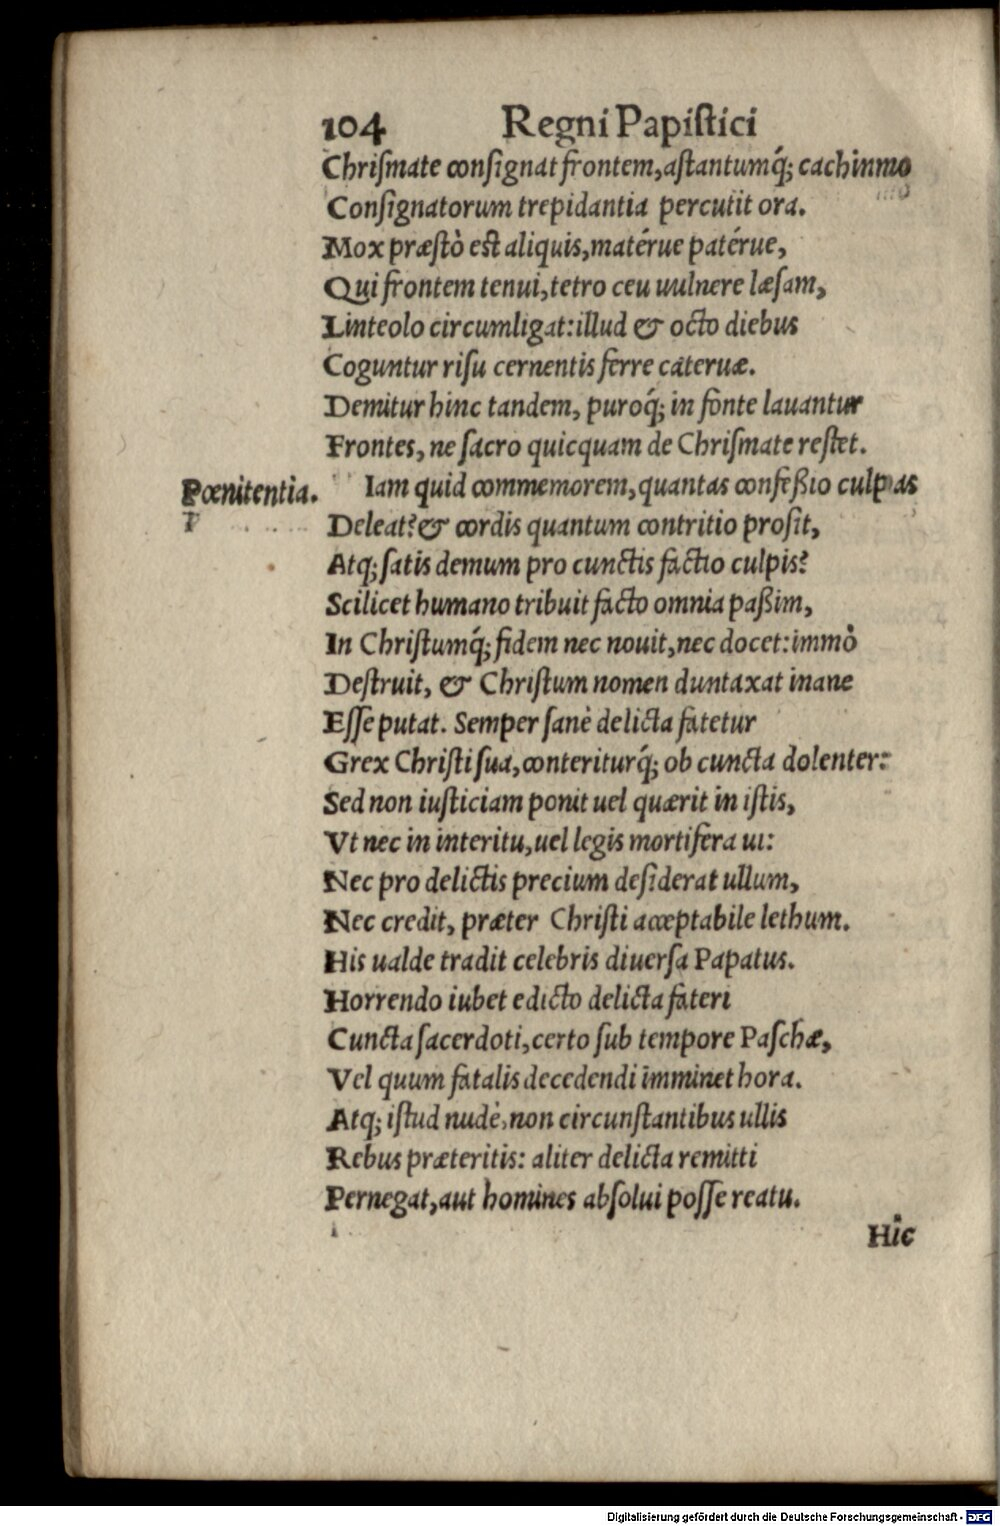 104 Regni Papiſtici
Chriſmate conſignat frontem, aſtantumq́; cachinmo
Conſignatorum trepidantia percutit ora.
Mox præſtò eſt aliquis, matérue patérue,
Qui frontem tenui, tetro ceu uulnere læſam,
Linteolo circumligat: illud & octo diebus
Coguntur riſu cernentis ferre cateruæ.
Demitur hinc tandem, puroq́; in fonte lauantur
Frontes, ne ſacro quicquam de Chriſmate reſtet.
Pœnitentia. Iam quid commemorem, quantas confeßio culpas
Deleat? & cordis quantum contritio proſit,
Atq; ſatis demum pro cunctis factio culpis?
Scilicet humano tribuit facto omnia paßim,
In Chriſtumq́; fidem nec nouit, nec docet: immò
Deſtruit, & Chriſtum nomen duntaxat inane
Eſſe putat. Semper ſanè delicta fatetur
Grex Chriſti ſua, conteriturq́; ob cuncta dolenter:
Sed non iuſticiam ponit uel quærit in iſtis,
Vt nec in interitu, uel legis mortifera ui:
Nec pro delictis precium deſiderat ullum,
Nec credit, præter Chriſti acceptabile lethum.
His ualde tradit celebris diuerſa Papatus.
Horrendo iubet edicto delicta fateri
Cuncta ſacerdoti, certo ſub tempore Paſchæ,
Vel quum fatalis decedendi imminet hora.
Atq; iſtud nudè, non circunſtantibus ullis
Rebus præteritis: aliter delicta remitti
Pernegat, aut homines abſolui poſſe reatu.
Hic
Digitalisierung gefördert durch die Deutsche Forschungsgemeinschaft - DFG